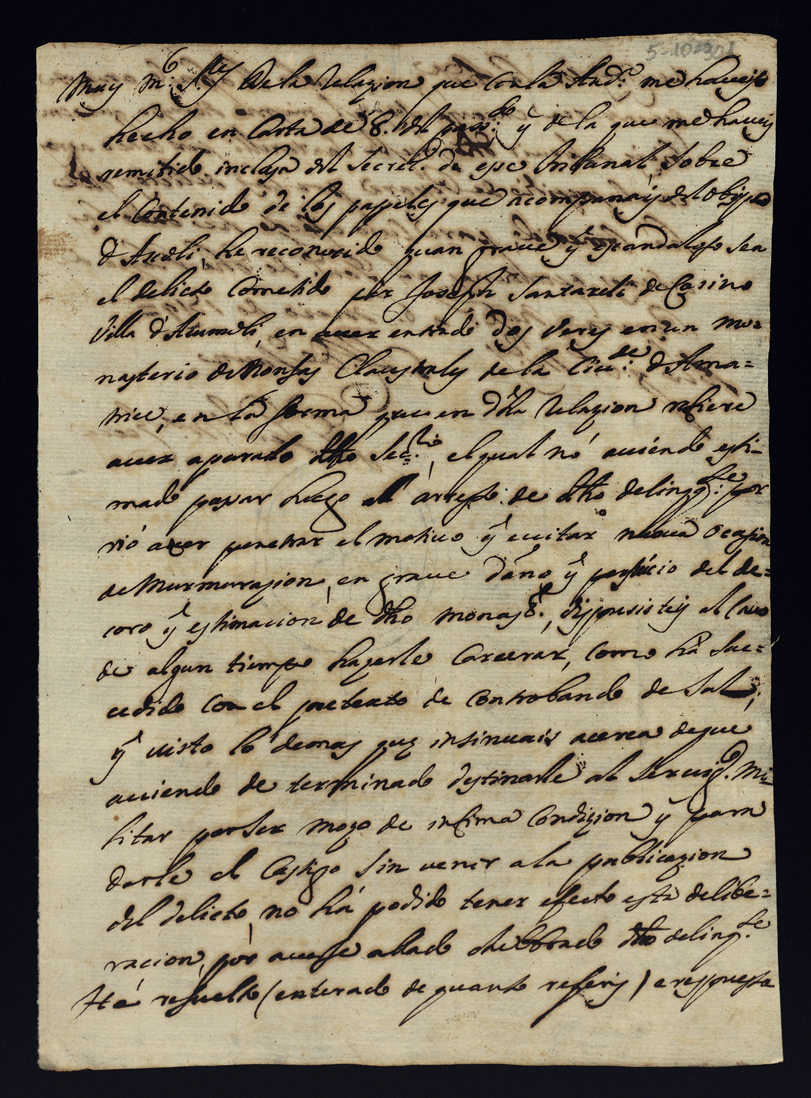 Muy m. S. De la relazion que con la Aud.ª me haveis
hecho en Carta de 8. del pas.do y de la que me haveis
remitido inclusa del Secret.º de esse tribunal, sobre
el Contenido de los papeles que acompanais del obispo
d'Ascoli, he reconocido quan grave y escandaloso sea
el delicto Cometido por Joseph Santareli de Casino
Villa d'Acumoli, en aver entrado dos vezes en un mo=
nasterio de Monjas Claustrales de la Ciu.de d'Ama=
trice, en la forma que en dha relazion refiere
aver apurado dho Sec.rio, el qual nó aviendo esti=
mado pasar luego al arresto de dho delinq.te por
nó aver penetrar el motivo y evitar nueva ocasion
de Murmurazion, en grave daño y perjuicio del de=
coro y estimacion de dho monas.º, dispusisteis al Cavo
de algun tiempo hazerle Carcerar, Como há suc=
cedido con el pretexto de Controbando de Sal;
y visto lo demas que insinuais acerca de que
aviendo determinado destinarle al Servizº. Mi=
litar por ser mozo de infima Condizion y para
darle el Castigo sin venir a la publicazion
del delicto, no há podido tener efecto esta delibe=
racion, por averse allado dho delinq.te
Hé resuelto (enterado de quanto referis) e respuesta